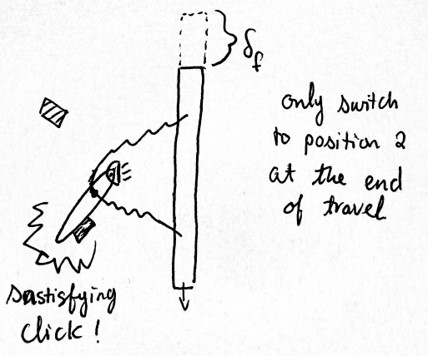 δf
only switch
to position 2
at the end
of travel
Satisfying
click!